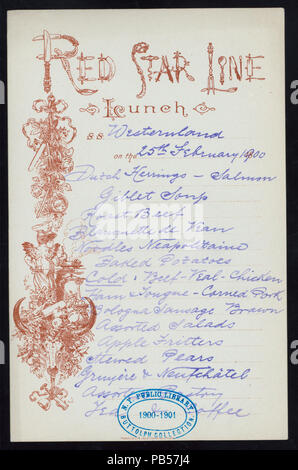 RED STAR LINE
Lunch
S.S. Westernland
on the 25th February 1900
Dutch Herrings - Salmon
Giblet Soup
Roast Beef
Blanquette de Veau
Noodles Neapolitaine
Jacked Potatoes
Cold: Beef-Veal-Chicken
Ham Tongue-Corned Pork
Bologna Sausage Brawn
Assorted Salads
Apple Fritters
Stewed Pears
Gruyère & Neufchâtel
Assorted Pastry
Tea Coffee
N.Y. PUBLIC LIBRARY
1900-1901
BUTTOLPH COLLECTION
alamy
Image ID: PB57J4
www.alamy.com